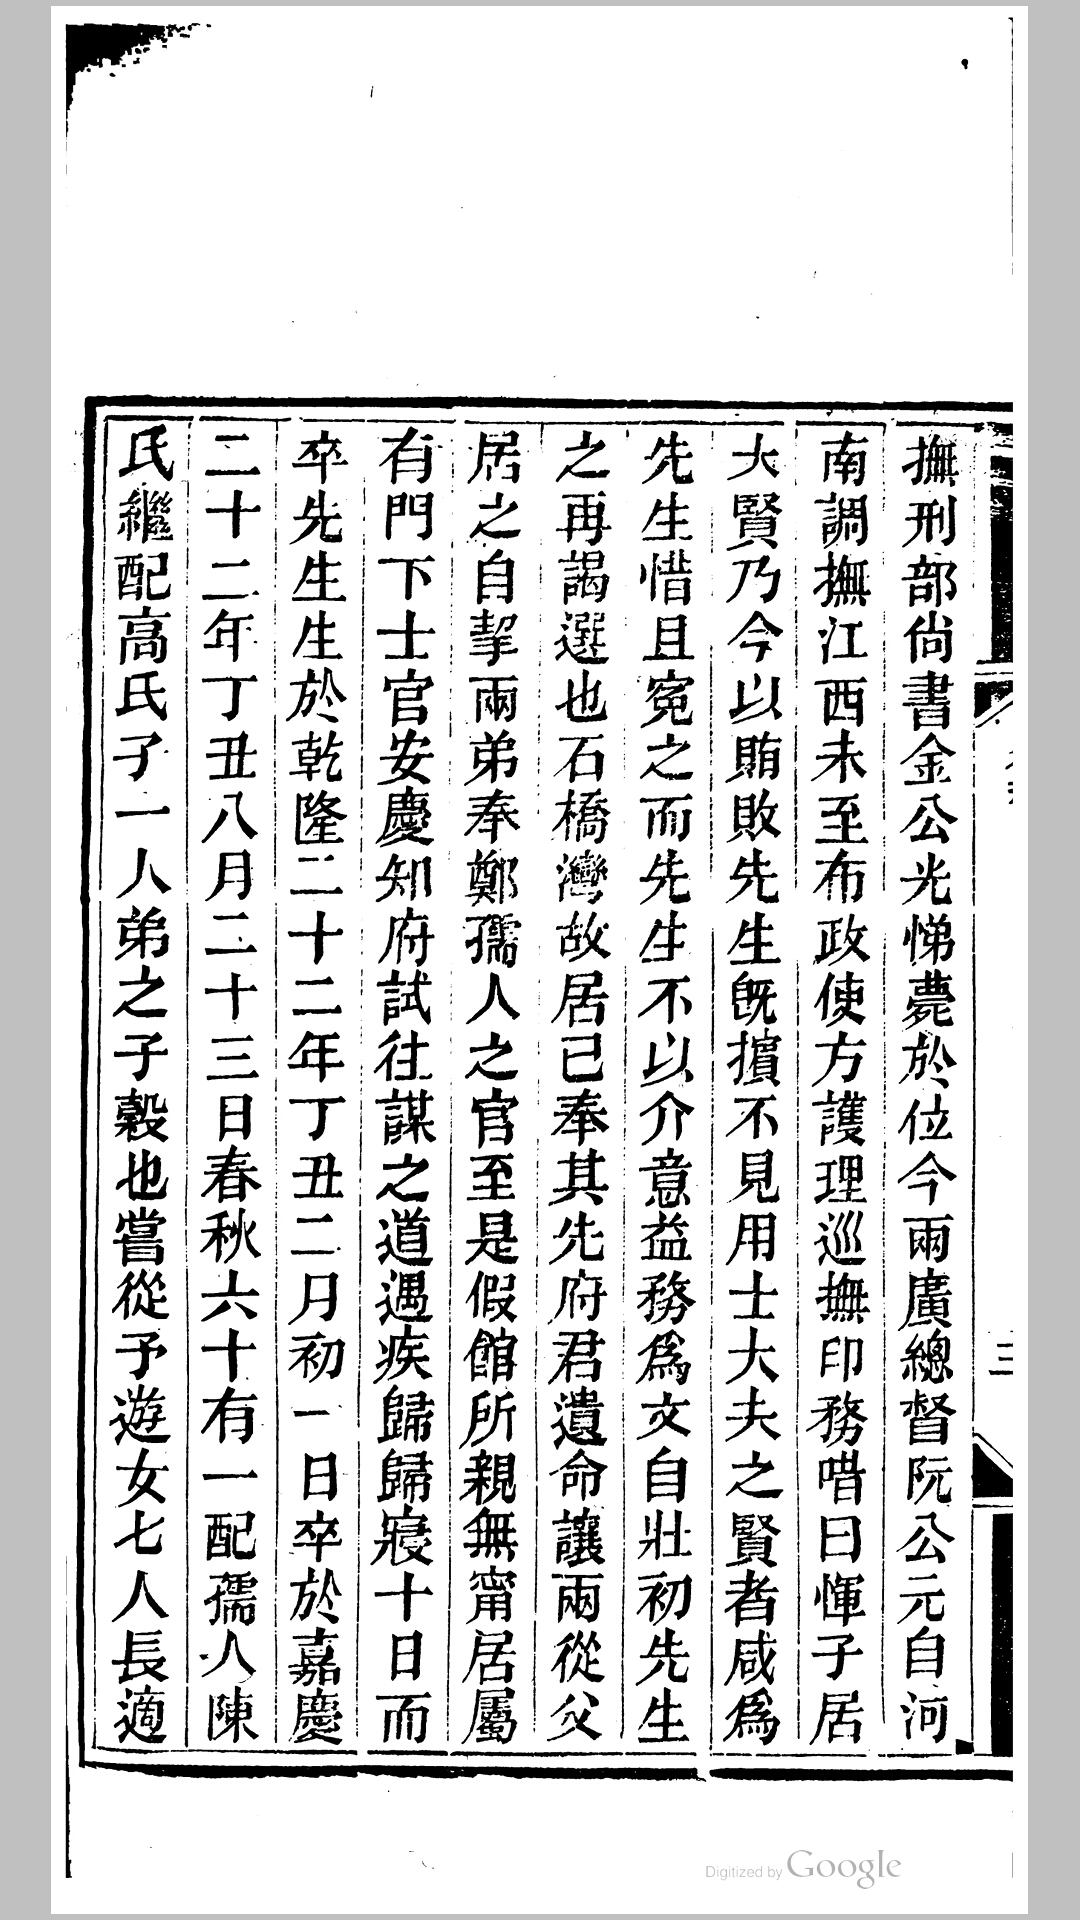 撫刑部尙書金公光悌薨於位今兩廣總督阮公元自河
南調撫江西未至布政使方護理巡撫印務唶曰惲子居
大賢乃今以賄敗先生旣擯不見用士大夫之賢者咸爲
先生惜且冤之而先生不以介意益務爲文自壯初先生
之再謁選也石橋灣故居已奉其先府君遺命讓兩從父
居之自挈兩弟奉鄭孺人之官至是假館所親無甯居屬
有門下士官安慶知府試往謀之道遇疾歸歸寢十日而
卒先生生於乾隆二十二年丁丑二月初一日卒於嘉慶
二十二年丁丑八月二十三日春秋六十有一配孺人陳
氏繼配高氏子一人弟之子穀也嘗從予遊女七人長適
三
Digitized by Google